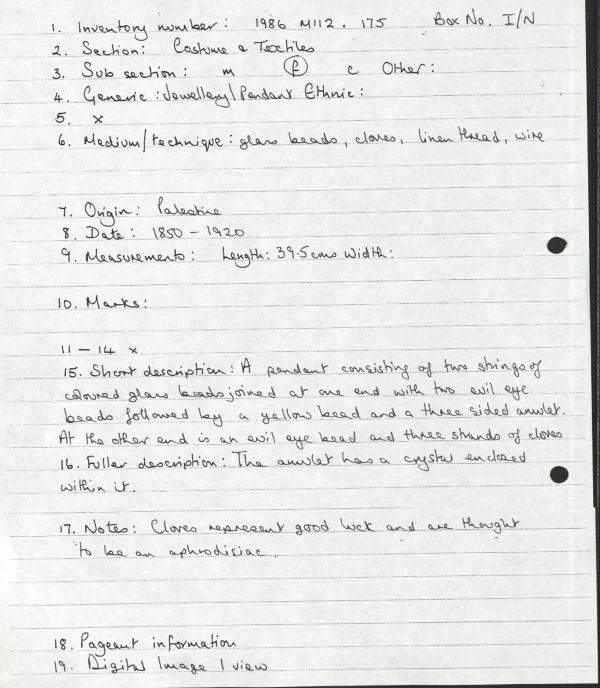 1. Inventory number: 1986 M112.175 Box No. I/N
2. Section: Costume & Textiles
3. Sub section: m f c Other:
4. Generic: Jewellery/Pendant Ethnic:
5. x
6. Medium/technique: glass beads, cloves, linen thread, wire
7. Origin: Palestine
8. Date: 1850 - 1920
9. Measurements: Length: 39.5cms Width:
10. Marks:
11 - 14 x
15. Short description: A pendant consisting of two strings of
coloured glass beads joined at one end with two evil eye
beads followed by a yellow bead and a three sided amulet.
At the other end is an evil eye bead and three strands of cloves
16. Fuller description: The amulet has a crystal enclosed
within it.
17. Notes: Cloves represent good luck and are thought
to be an aphrodisiac.
18. Pageant information
19. Digital Image 1 view